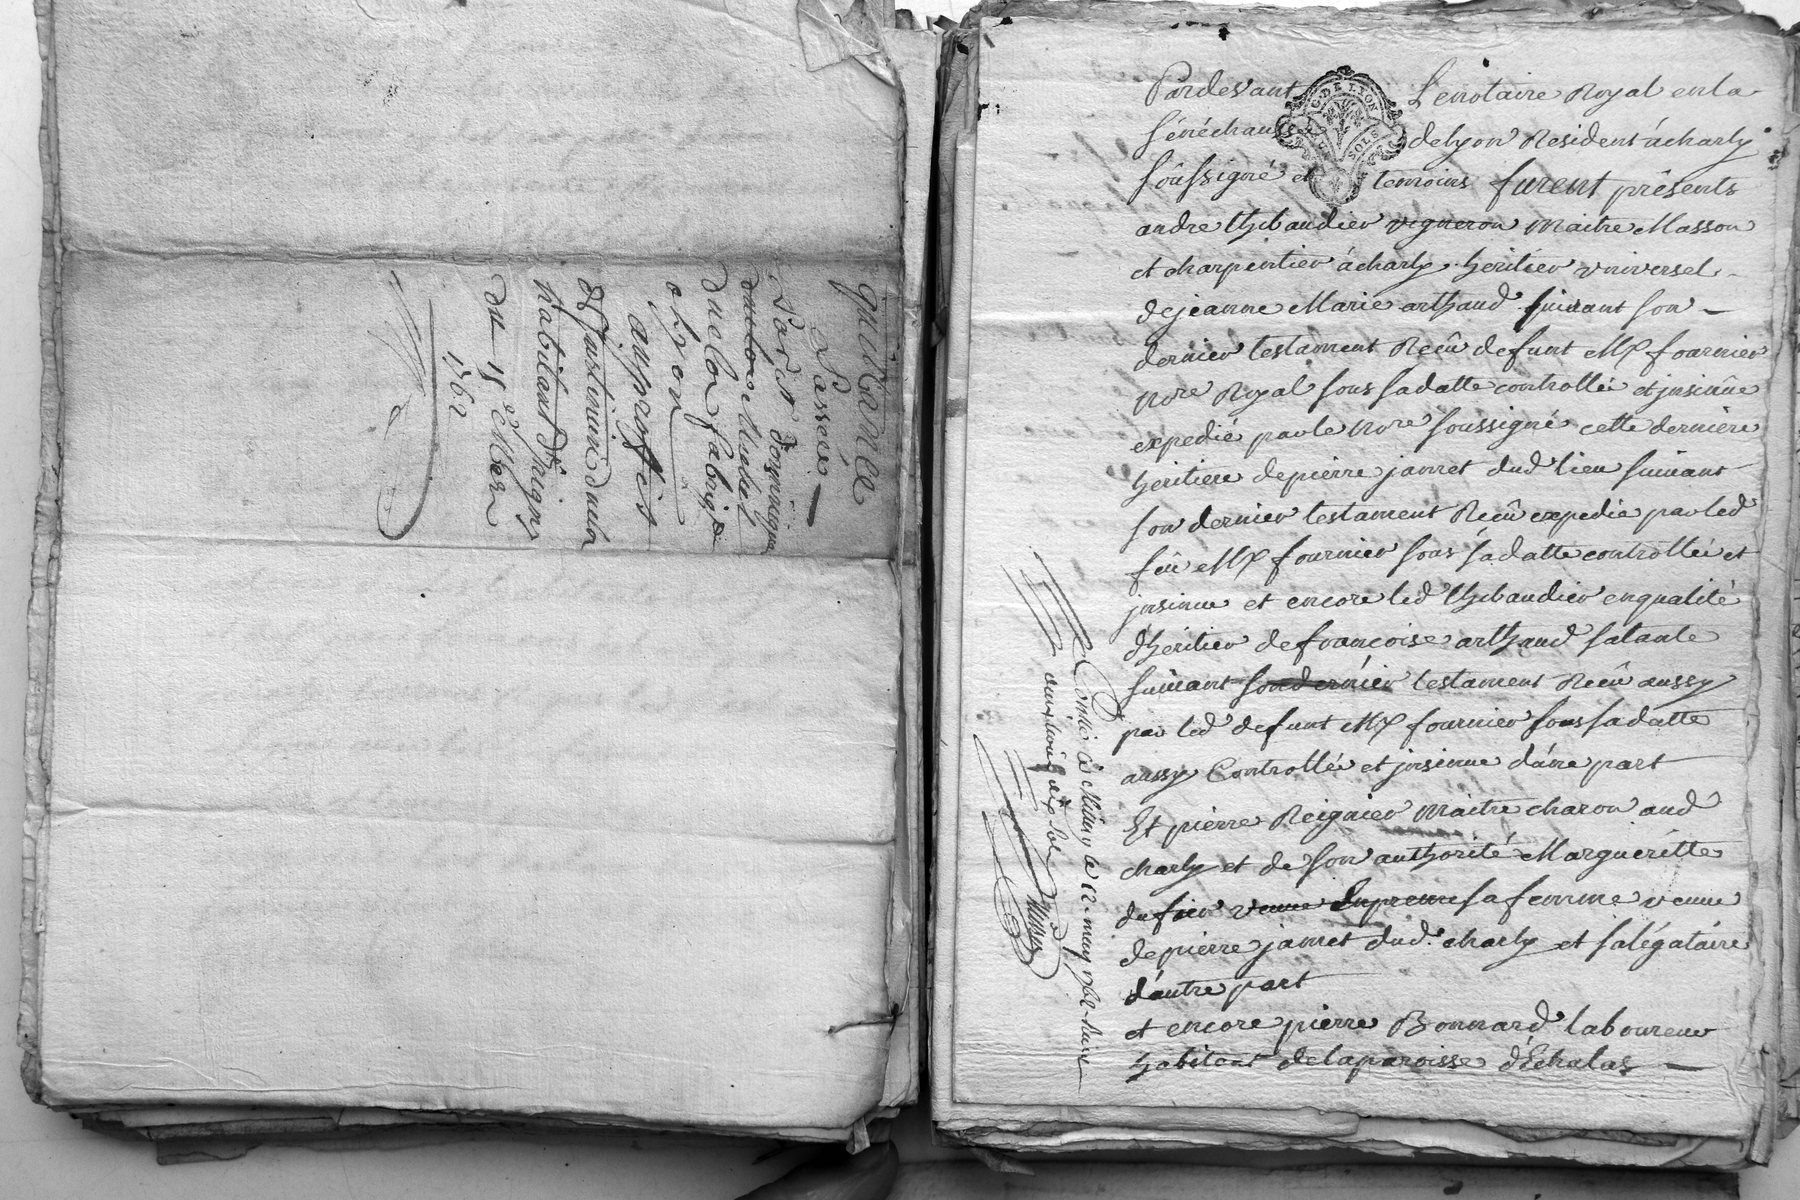 quittance
Passée
Par S.r dominique
du la fabrique
a lyon
a
de faustinien dulor
habitant d'haigny
du 15e Mars
1762
G. DE LYON
SOLS
Pardevant Lenotaire Royal en la
sénéchaussée delyon Resident àcharly
soussigné et temoins furent présents
andre thibaudier vigneron Maitre Masson
et charpentier àcharly heritier universel
dejeanne Marie arthaud suivant son
dernier testament Recû defunt Me fournier
nore Royal sous sadatte controllée et jnsinüe
expedié parle nore soussigné cette derniére
heritiere depierre janret dud lieu suivant
son dernier testament Recû expedié par led
feu Me fournier sous sadatte controllée et
jnsinue et encore led thibaudier enqualité
d'heritier defrançoise arthaud satante
suivant son dernier testament Recû aussy
par led defunt Me fournier sous sadatte
aussy Controllée et jnsinue d'une part
Et pierre Reignier Maitre charon aud
charly et de son authorité Marguéritte
dufier veuve dupreme sa femme veuve
depierre janret dud. charly et salégataire
d'autre part
et encore pierre Bonnard laboureur
habitant delaparoisse d'Echalas
Controllé à Millery le 12 may 1762 Reçu